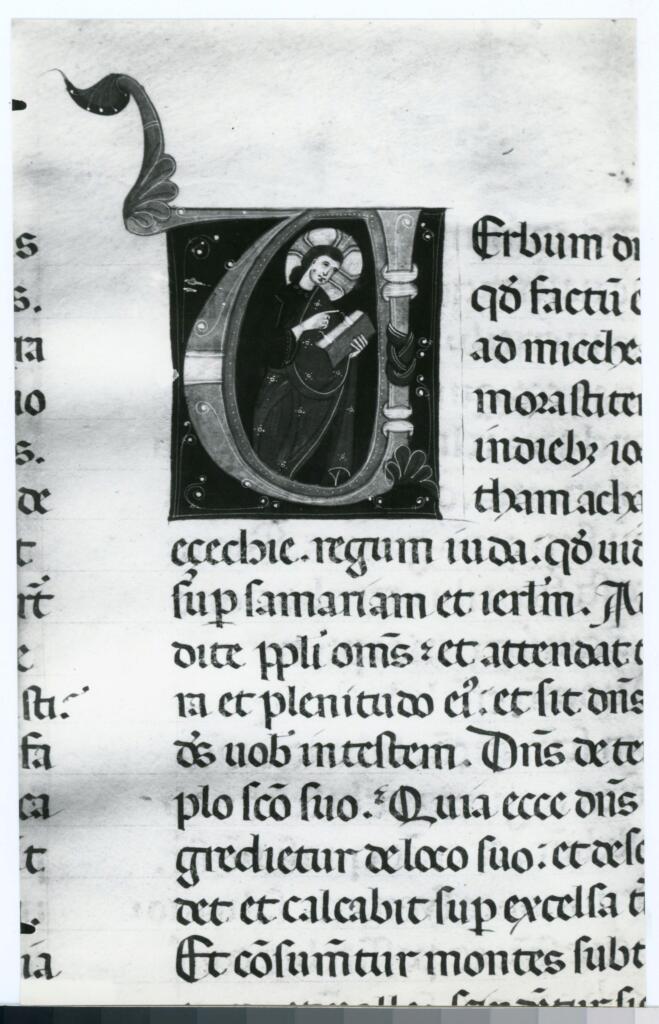 s
s.
ra
no
s.
de
t
r̄t
e
sti:
fa
ca
t
ia
VErbum
qđ factū
ad micche
morastite
indieb; io
tham acha
ezechie. regum iuda. qđ uid
sup samariam et ierłm. Au
dite ppłi om̄s: et attendat t
ra et plenitudo ei': et sit dn̄s
ds uob intestem. Dn̄s de te
plo sc̄o suo. Quia ecce dn̄s
gredietur de loco suo: et desc
det et calcabit sup excelsa t̄
Et cōsum̄tur montes subt